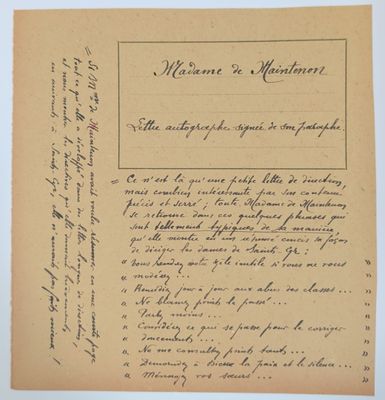 Madame de Maintenon
Lettre autographe signée de son paraphe.
= Ce n'est là qu'une petite lettre de direction,
mais combien intéressante par son contenu
précis et serré ; toute Madame de Maintenon
se retrouve dans ces quelques phrases qui
sont tellement typiques de sa manière,
qu'elle montre en une façon
de diriger les dames de Saint Cyr :
" Vous rendez votre zèle inutile si vous ne vous "
" modérez ... "
" Remédiez jour à jour aux abus des classes ... "
" Ne blamez point le passé ... "
" Parlez moins ... "
" Considérez ce qui se passe pour le corriger "
" doucement ... "
" Ne me consultez point tant ... "
" Demandez à Dieu la paix et le silence ... "
" Ménagez vos sœurs ... "
= Si Mme de Maintenon avait voulu résumer en une courte page
tout ce qu'elle a développé dans de longues de direction,
et nous montrer les directives qu'elle
en œuvre à Saint Cyr, elle n'aurait pas fait mieux !